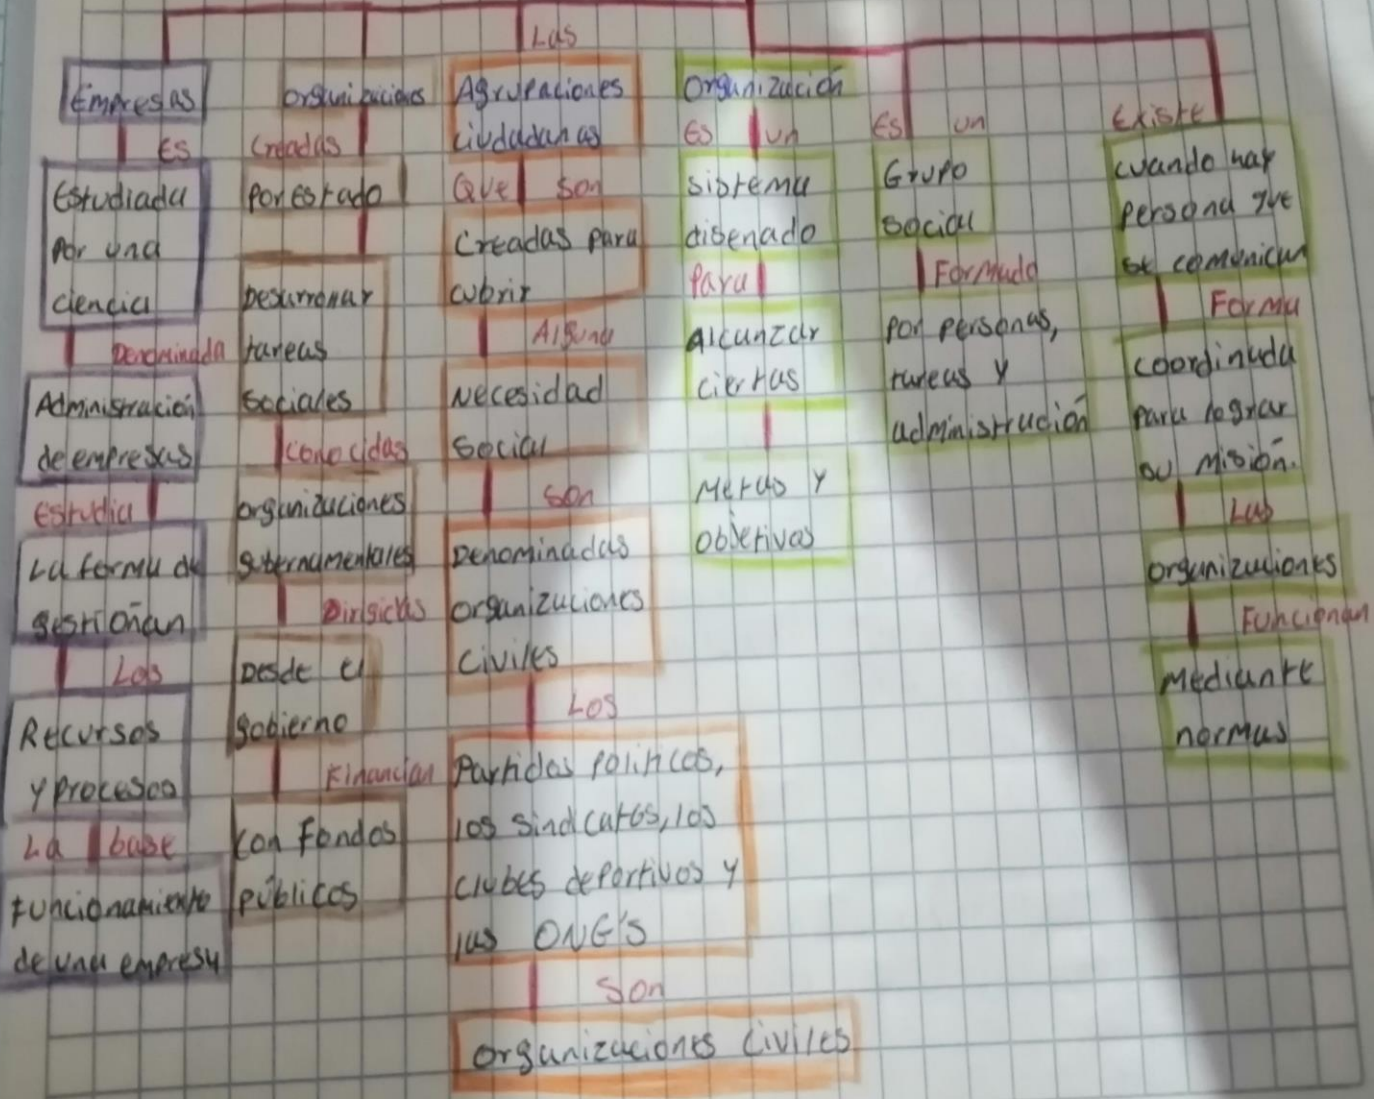 Las
Empresas
Es
Estudiada
Por una
ciencia
Denominada
Administración
de empresas
Estudia
La forma de
gestioñan
Los
Recursos
y procesos
La base
Funcionamiento
de una empresa
organizaciones
Creadas
por estado
Desarrollar
tareas
sociales
Conocidas
organizaciones
gubernamentales
Dirigidas
Desde el
gobierno
Financian
con fondos
públicos
Agrupaciones
ciudadanas
Que son
Creadas para
cubrir
Alguna
Necesidad
social
Son
Denominadas
organizaciones
civiles
Los
Partidos políticos,
los sindicatos, los
clubes deportivos y
las ONG'S
Son
organizaciones civiles
Organización
Es un
sistema
disenado
Para
Alcanzar
ciertas
Metas y
objetivos
Es un
Grupo
social
Formado
por personas,
tareas y
administración
Existe
cuando hay
persona que
se comunican
Forma
coordinada
para lograr
su misión.
Las
organizaciones
Funcionan
Mediante
normas